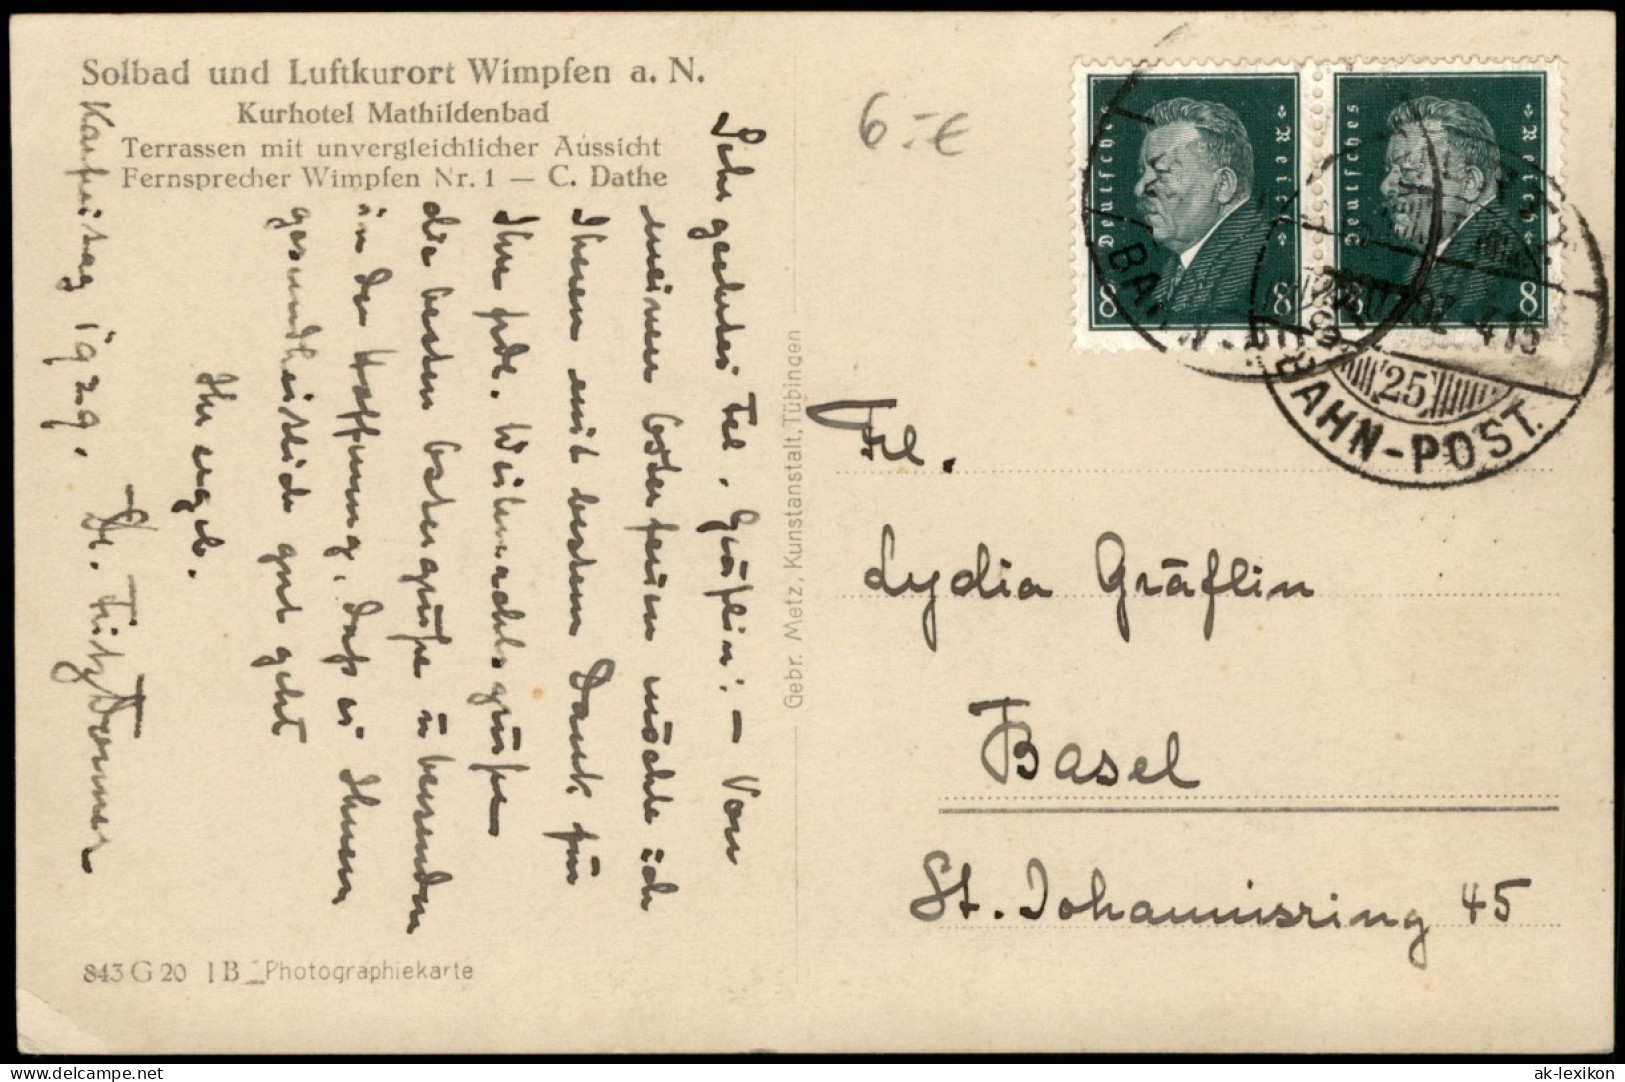 Solbad und Luftkurort Wimpfen a. N.
Kurhotel Mathildenbad
Terrassen mit unvergleichlicher Aussicht
Fernsprecher Wimpfen Nr. 1 — C. Dathe
Karfreitag 1929.
Sehr geehrtes Frl. Gräflin! – Von
meinen Osterferien möchte ich
Ihnen mit bestem Dank für
Ihre frdl. Weihnachtsgrüße
die besten Ostergrüße übersenden
in der Hoffnung, daß es Ihnen
gesundheitlich gut geht
Ihr ergeb.
Dr. Fritz Dormer
843 G 20 I B Photographiekarte
Gebr. Metz, Kunstanstalt, Tübingen
6.-€
Deutsches Reich
8 8
Deutsches Reich
8 8
BAHN-POST
25
BAHN-POST
Frl.
Lydia Gräflin
Basel
St. Johannisring 45
delcampe.net
ak-lexikon